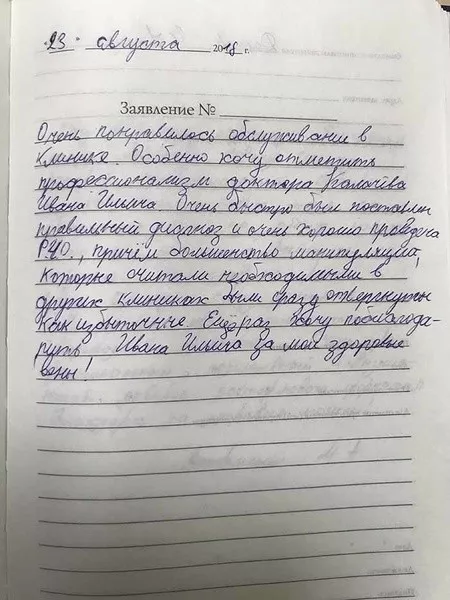 "23" августа 2018 г.
Заявление №
Очень понравилось обслуживание в
клинике. Особенно хочу отметить
профессионализм доктора Калачёва
Ивана Ильича. Очень быстро был поставлен
правильный диагноз и очень хорошо проведена
РЧО, причём большинство манипуляций,
которые считали необходимыми в
других клиниках были сразу отвергнуты
как избыточные. Ещё раз хочу поблагода-
рить Ивана Ильича за мои здоровые
вены!